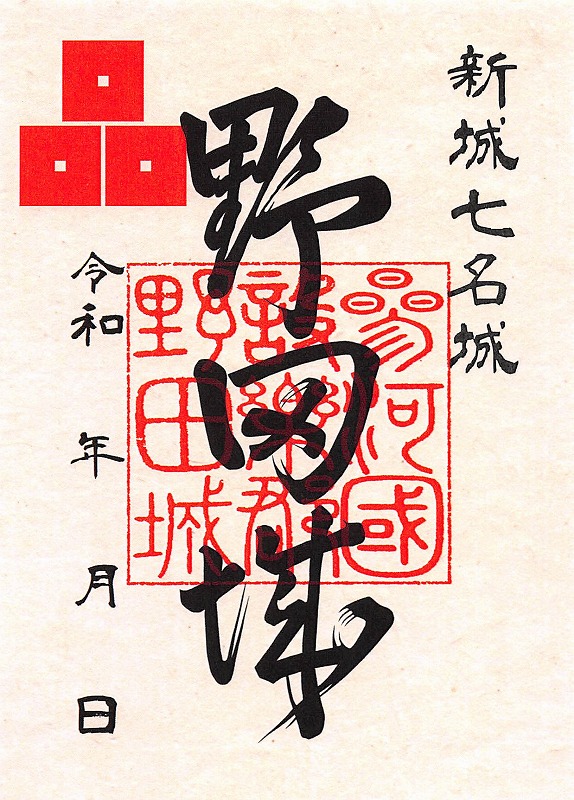 新城七名城
野田城
參河國
設樂郡
野田城
令和 年 月 日